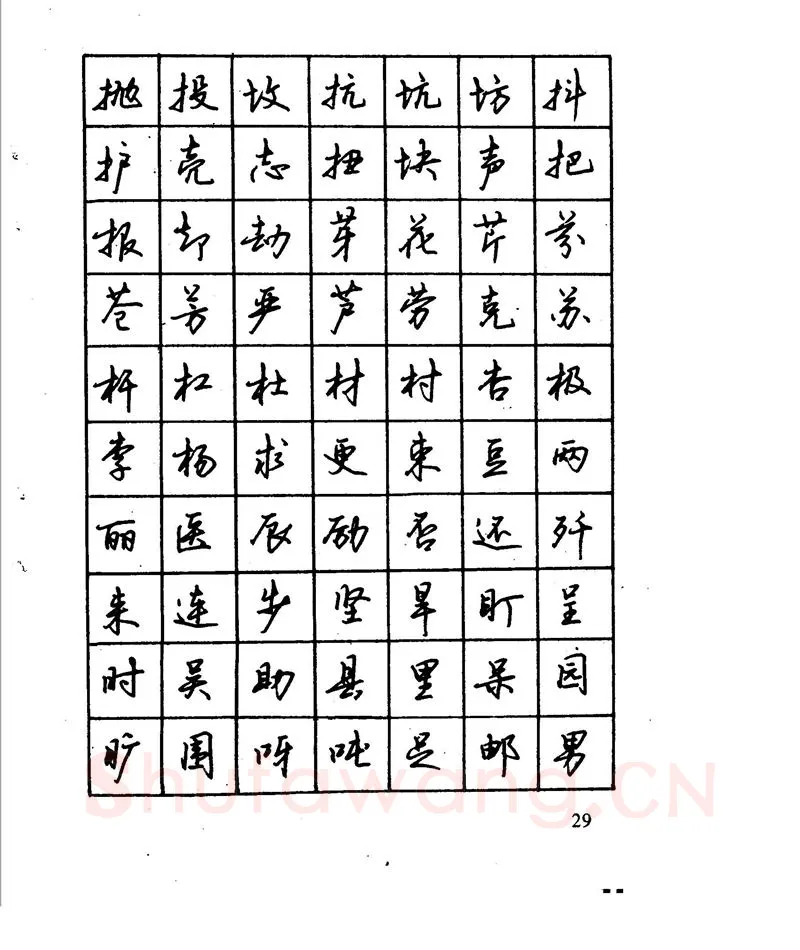 抛投坟抗坑坊抖
护壳志扭块声把
报却劫芽花芹芬
苍芳严芦劳克苏
杆杠杜材村杏极
李杨求更束豆两
丽医辰励否还歼
来连步坚旱盯呈
时吴助县里呆园
旷围呀吨足邮男
Shufawang.CN
29